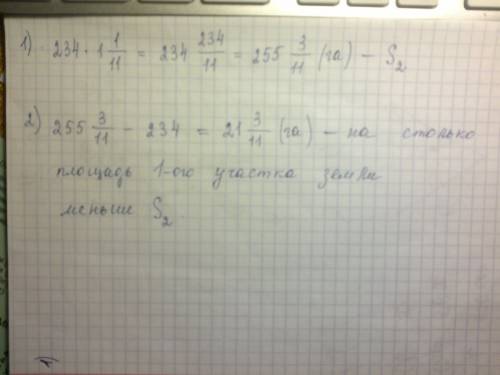 1) 234 · 1 1/11 = 234 234/11 = 255 3/11 (га) – S₂
2) 255 3/11 – 234 = 21 3/11 (га) – на столько
площадь 1-ого участка земли
меньше S₂.